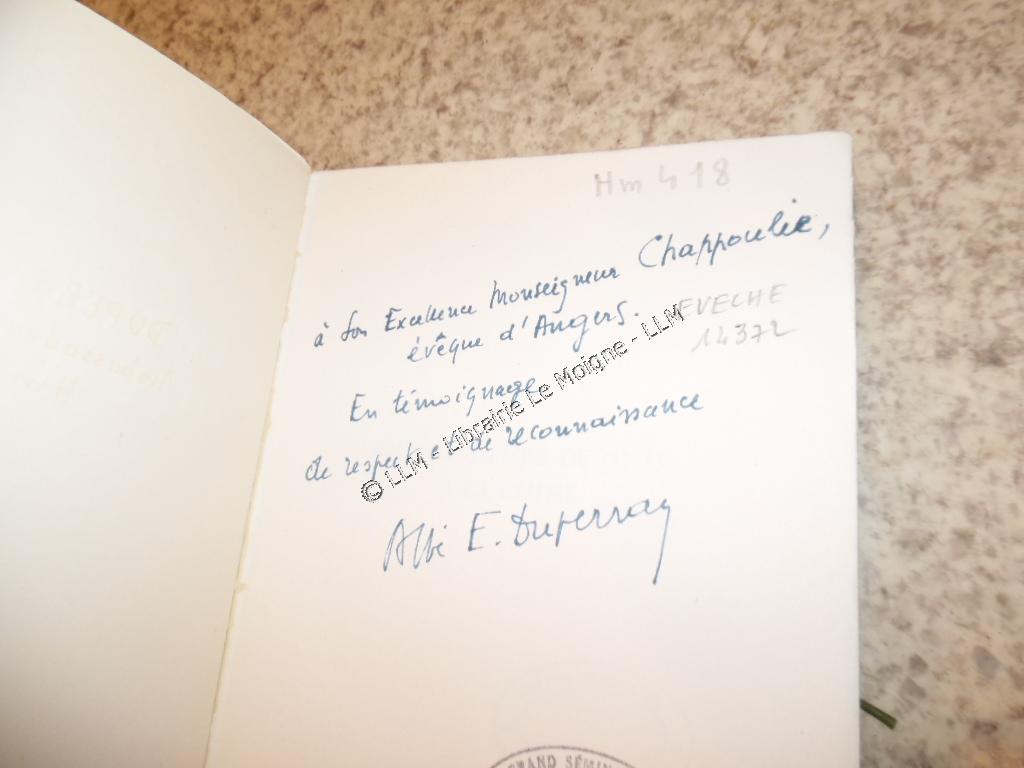 Hm 418
à Son Excellence Monseigneur Chappoulie,
évêque d'Angers.
EVECHE
14372
En témoignage
de respect et de reconnaissance
Abbé E. Duperray
© LLM - Librairie Le Moigne - LLM
GRAND SÉMIN